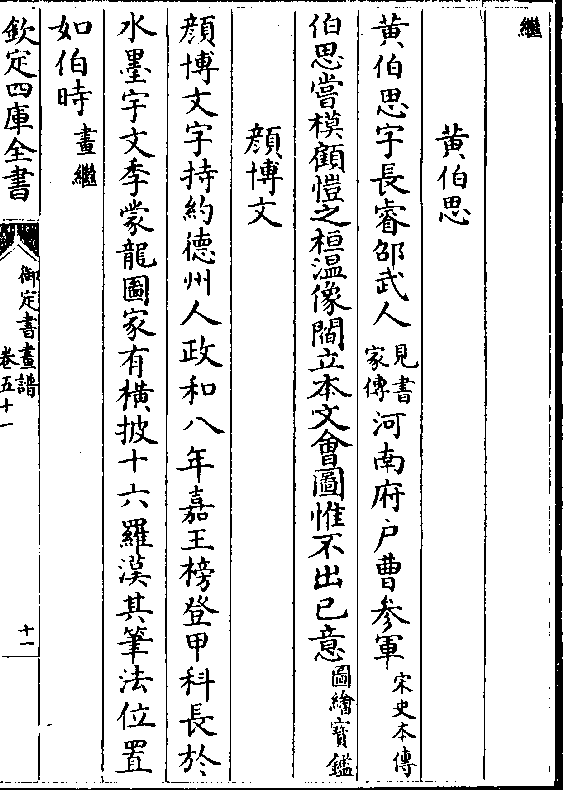 繼
黄伯思
黄伯思字長睿邵武人見書家傳河南府户曹参軍宋史本傳
伯思嘗模顧愷之桓温像閻立本文會圖惟不出已意圖繪寳鑑
顔博文
顔博文字持約德州人政和八年嘉王榜登甲科長於
水墨宇文季蒙龍圖家有横披十六羅漢其筆法位置
如伯時畫繼
欽定四庫全書
御定書畫譜
卷五十一
十一